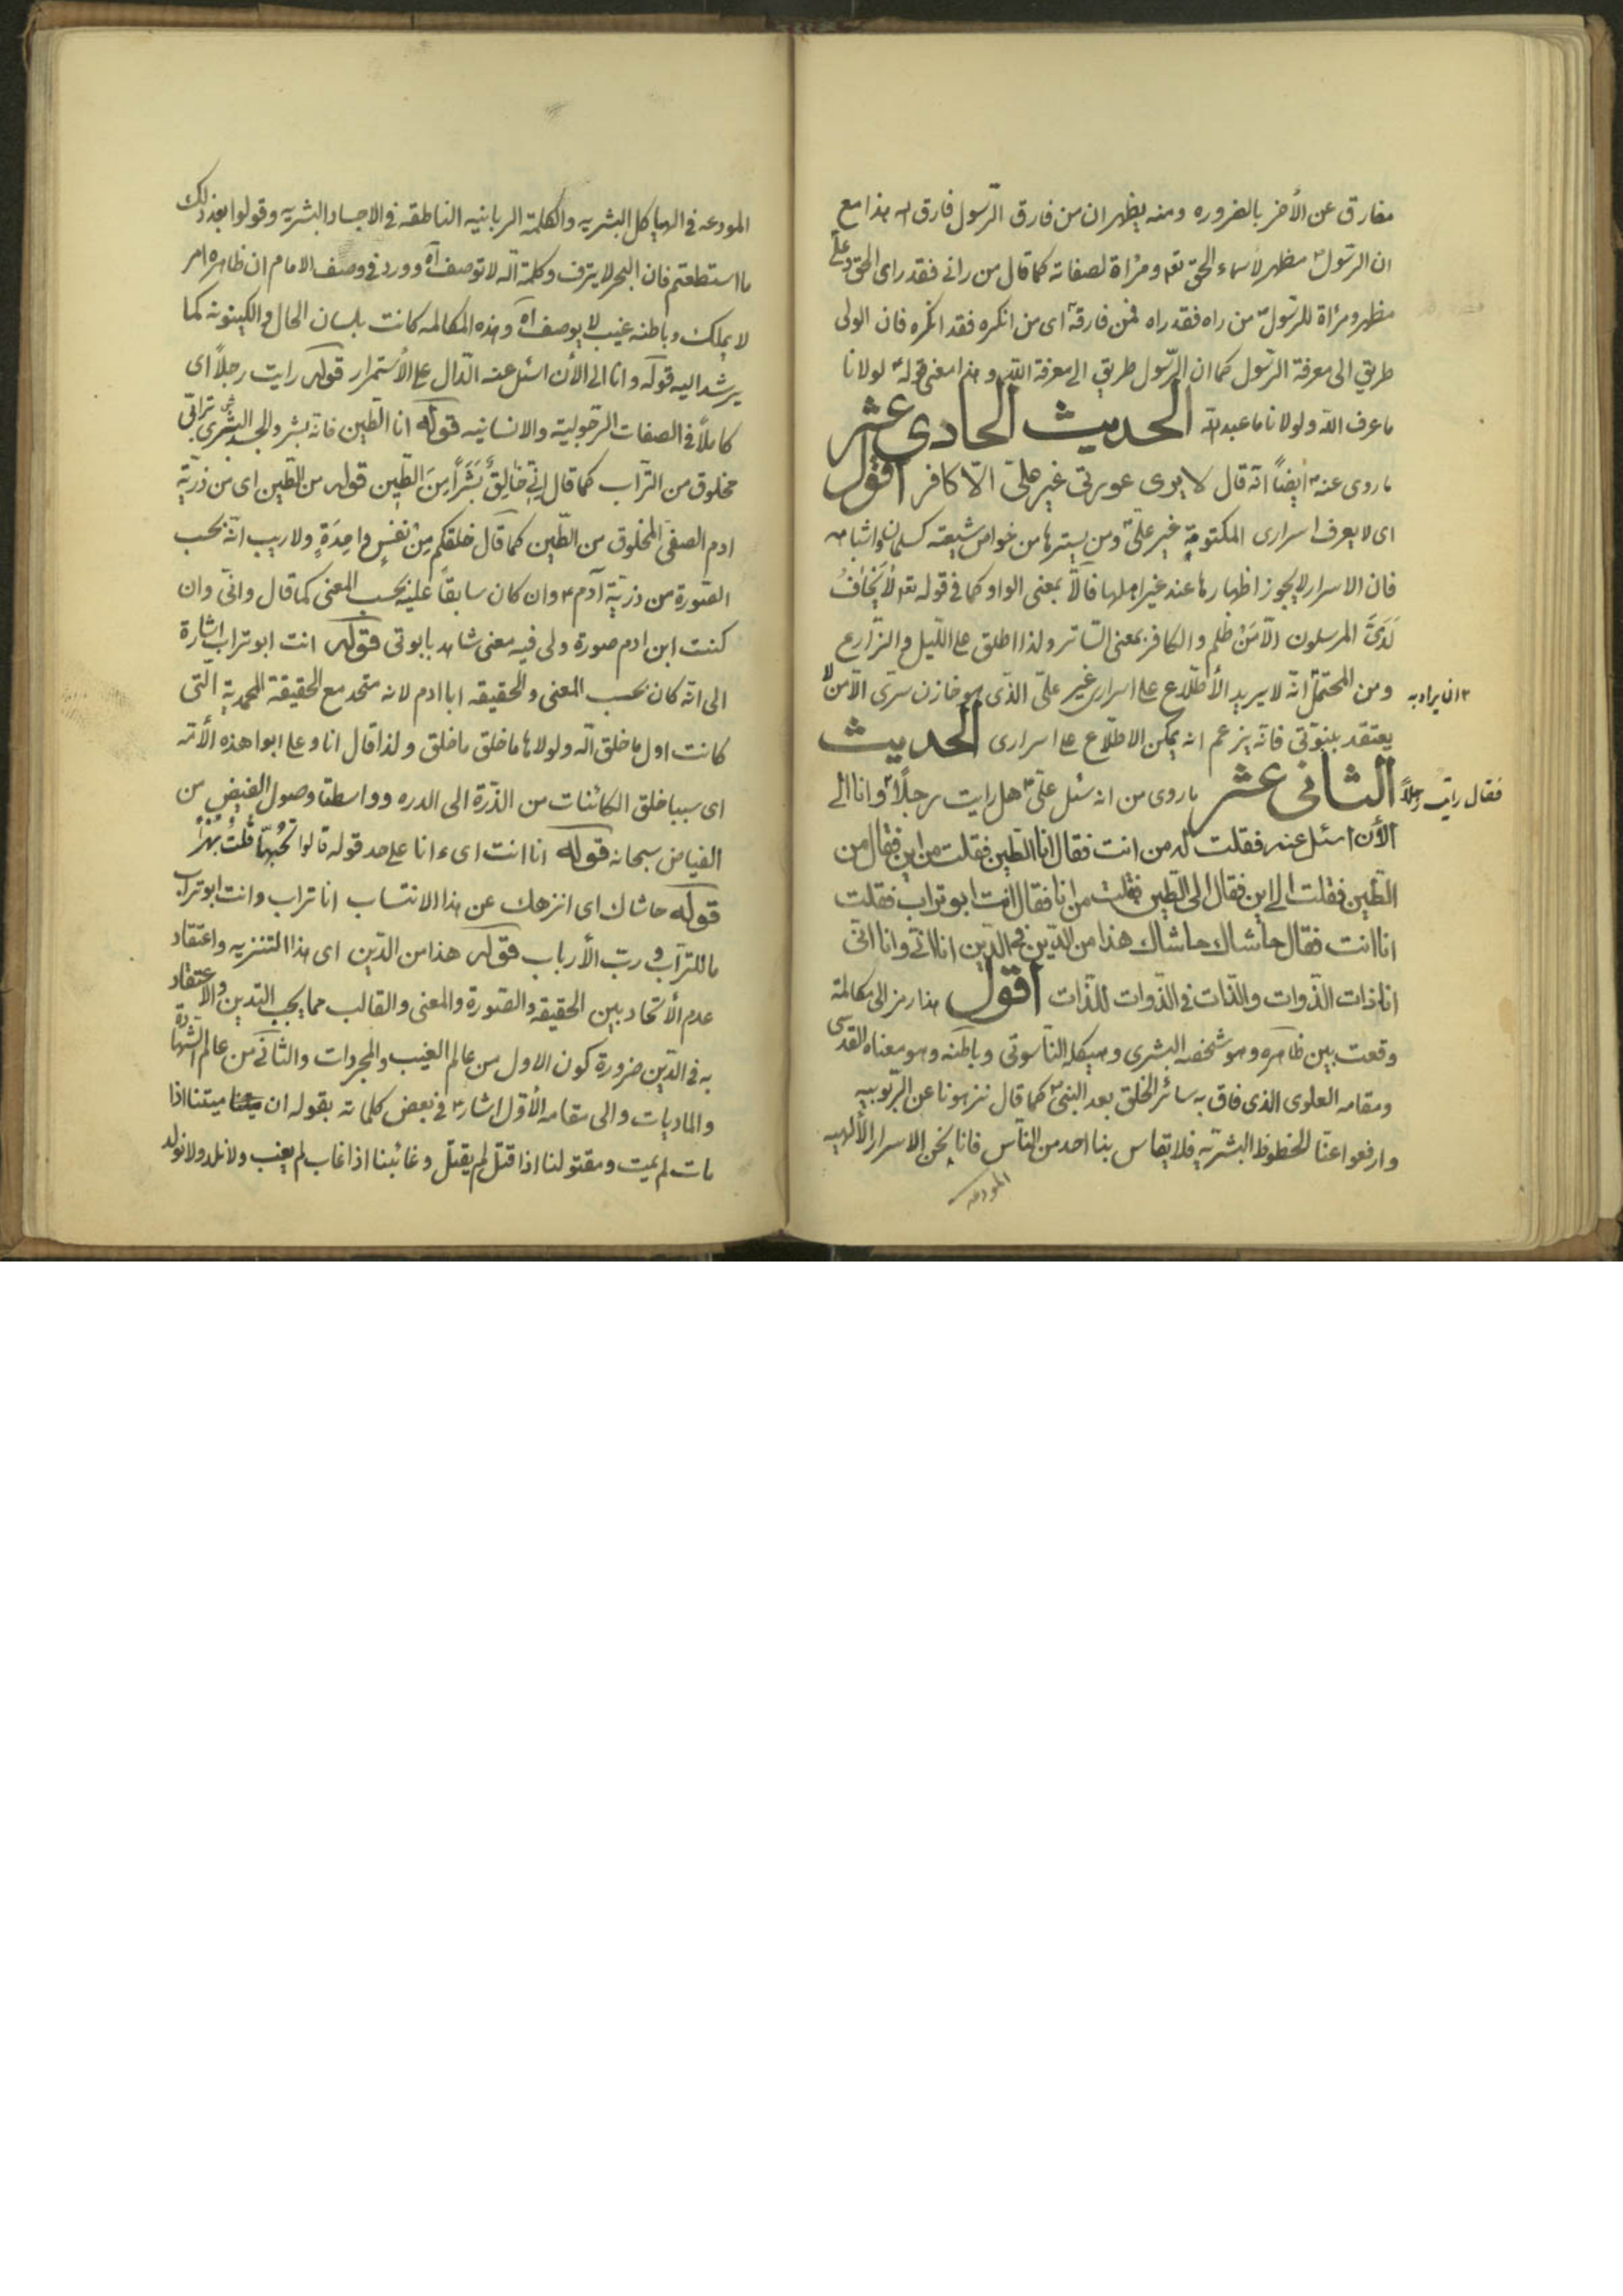 مفارق عن الأخر بالضروره ومنه يظهر ان من فارق الرّسول فارق الله هذا مع
ان الرسول مظهر لأسماء الحق تعه ومرٔاة لصفاته كما قال من رانى فقد راى الحق وعلى
مظهر ومرٔاة للرسول من راه فقد راه فمن فارقه اى من انكره فقد انكره فان الولى
طريق الى معرفة الرسول كما ان الرّسول طريق الى معرفة الله وهذا معنى قوله لولانا
ماعرف الله ولولانا ماعبد الله الحديث الحادى عشر
ماروى عنه ايضاً انّه قال لا يرى عورتى غير علىّ الّا كافر اقول
اى لا يعرف اسرارى المكتومة غير علىّ ومن يسترها من خواص شيعته كسلمان واشباهه
فان الاسرار لا يجوز اظهارها عند غير اهلها فالّا بمعنى الواو كما فى قوله تعه لا يَخافُ
لَدَىَّ المرسلون الّا مَنْ ظلم والكافر بمعنى السّاتر ولذا اطلق على اللّيل والزّارع
ومن المحتمل انّه لا يريد الأطّلاع على اسرارى غير علىّ الذّى هو خازن سرّى الّا من لا
ان يراد به
يعتقد بنبوّتى فانّه يزعم انه يمكن الاطّلاع على اسرارى الحديث
الثانى عشر ماروى من انه سئل علىّ هل رايت رجلاً وانا الى
فقال رايت رجلاً
الأن اسئل عنه فقلت له من انت فقال انا الطّين فقلت من اين فقال من
الطّين فقلت الى اين فقال الى الطّين فقلت من انا فقال انت ابو تراب فقلت
انا انت فقال حاشاك حاشاك هذا من الدّين فى الدّين انا انا وانا انى
انا ذات الذّوات والذّات فى الذّوات للذّات اقول هذا رمز الى مكالمة
وقعت بين ظاهره وهو شخصه البشرى وهيكله النّاسوتى وباطنه وهو معناه القدسى
ومقامه العلوى الذى فاق به سائر الخلق بعد النبىّ كما قال نزهونا عن الرّبوبيه
وارفعوا عنّا الحظوظ البشريّه فلا يقاس بنا احد من النّاس فانا نحن الاسرار الألهيه
المودعه
المودعه فى الهياكل البشريه والكلمة الربانيه الناطقه فى الاجساد البشريه وقولوا بعد ذلك
ما استطعتم فان البحر لا ينزف وكلمة الله لا توصف اه وورد فى وصف الامام ان ظاهره امر
لا يملك وباطنه غيب لا يوصف اه وهذه المكالمه كانت بلسان الحال والكينونه كما
يرشد اليه قوله وانا الى الأن اسئل عنه الدّال على الأستمرار قوله رايت رجلاً اى
كاملاً فى الصفات الرّجوليّة والانسانيه قوله انا الطّين فانّه بشر والجسد البشرى ترابى
مخلوق من التّراب كما قال اِنّى خالِقٌ بَشَراً مِنَ الطّين قوله من الطّين اى من ذرّيّة
ادم الصفى المخلوق من الطّين كما قال خلقكم مِنْ نفسٍ واحِدَةٍ ولا ريب انّه بحسب
الصّورة من ذريّة آدم وان كان سابقاً عليه بحسب المعنى كما قال وانّى وان
كنت ابن ادم صورة ولى فيه معنى شاهد بابوتى قوله انت ابو تراب اشارة
الى انّه كان بحسب المعنى والحقيقه ابا ادم لانه متحد مع الحقيقة المحمّديّة الّتى
كانت اول ما خلق الله ولولاها ما خلق ما خلق ولذا قال انا وعلى ابوا هذه الأمّه
اى سببا خلق الكائنات من الذّرّة الى الدره وواسطتا وصول الفيض من
الفياض سبحانه قوله انا انت اىء انا على حد قوله قالوا تُحِبّها قلتُ بَهْراً
قوله حاشاك اى انزهك عن هذا الانتساب انا تراب وانت ابو تراب
ما للتراب وربّ الأرباب قوله هذا من الدّين اى هذا التنزيه واعتقاد
عدم الأتّحاد بين الحقيقه والصّورة والمعنى والقالب مما يجب التدين والاعتقاد
به فى الدّين ضرورة كون الاول من عالم الغيب والمجردات والثانى من عالم الشّهادة
والماديات والى مقامه الأوّل اشار فى بعض كلماته بقوله ان ميتنا اذا
مات لم يمت ومقتولنا اذا قتل لم يقتل وغائبنا اذا غاب لم يغب ولا نلد ولا نولد